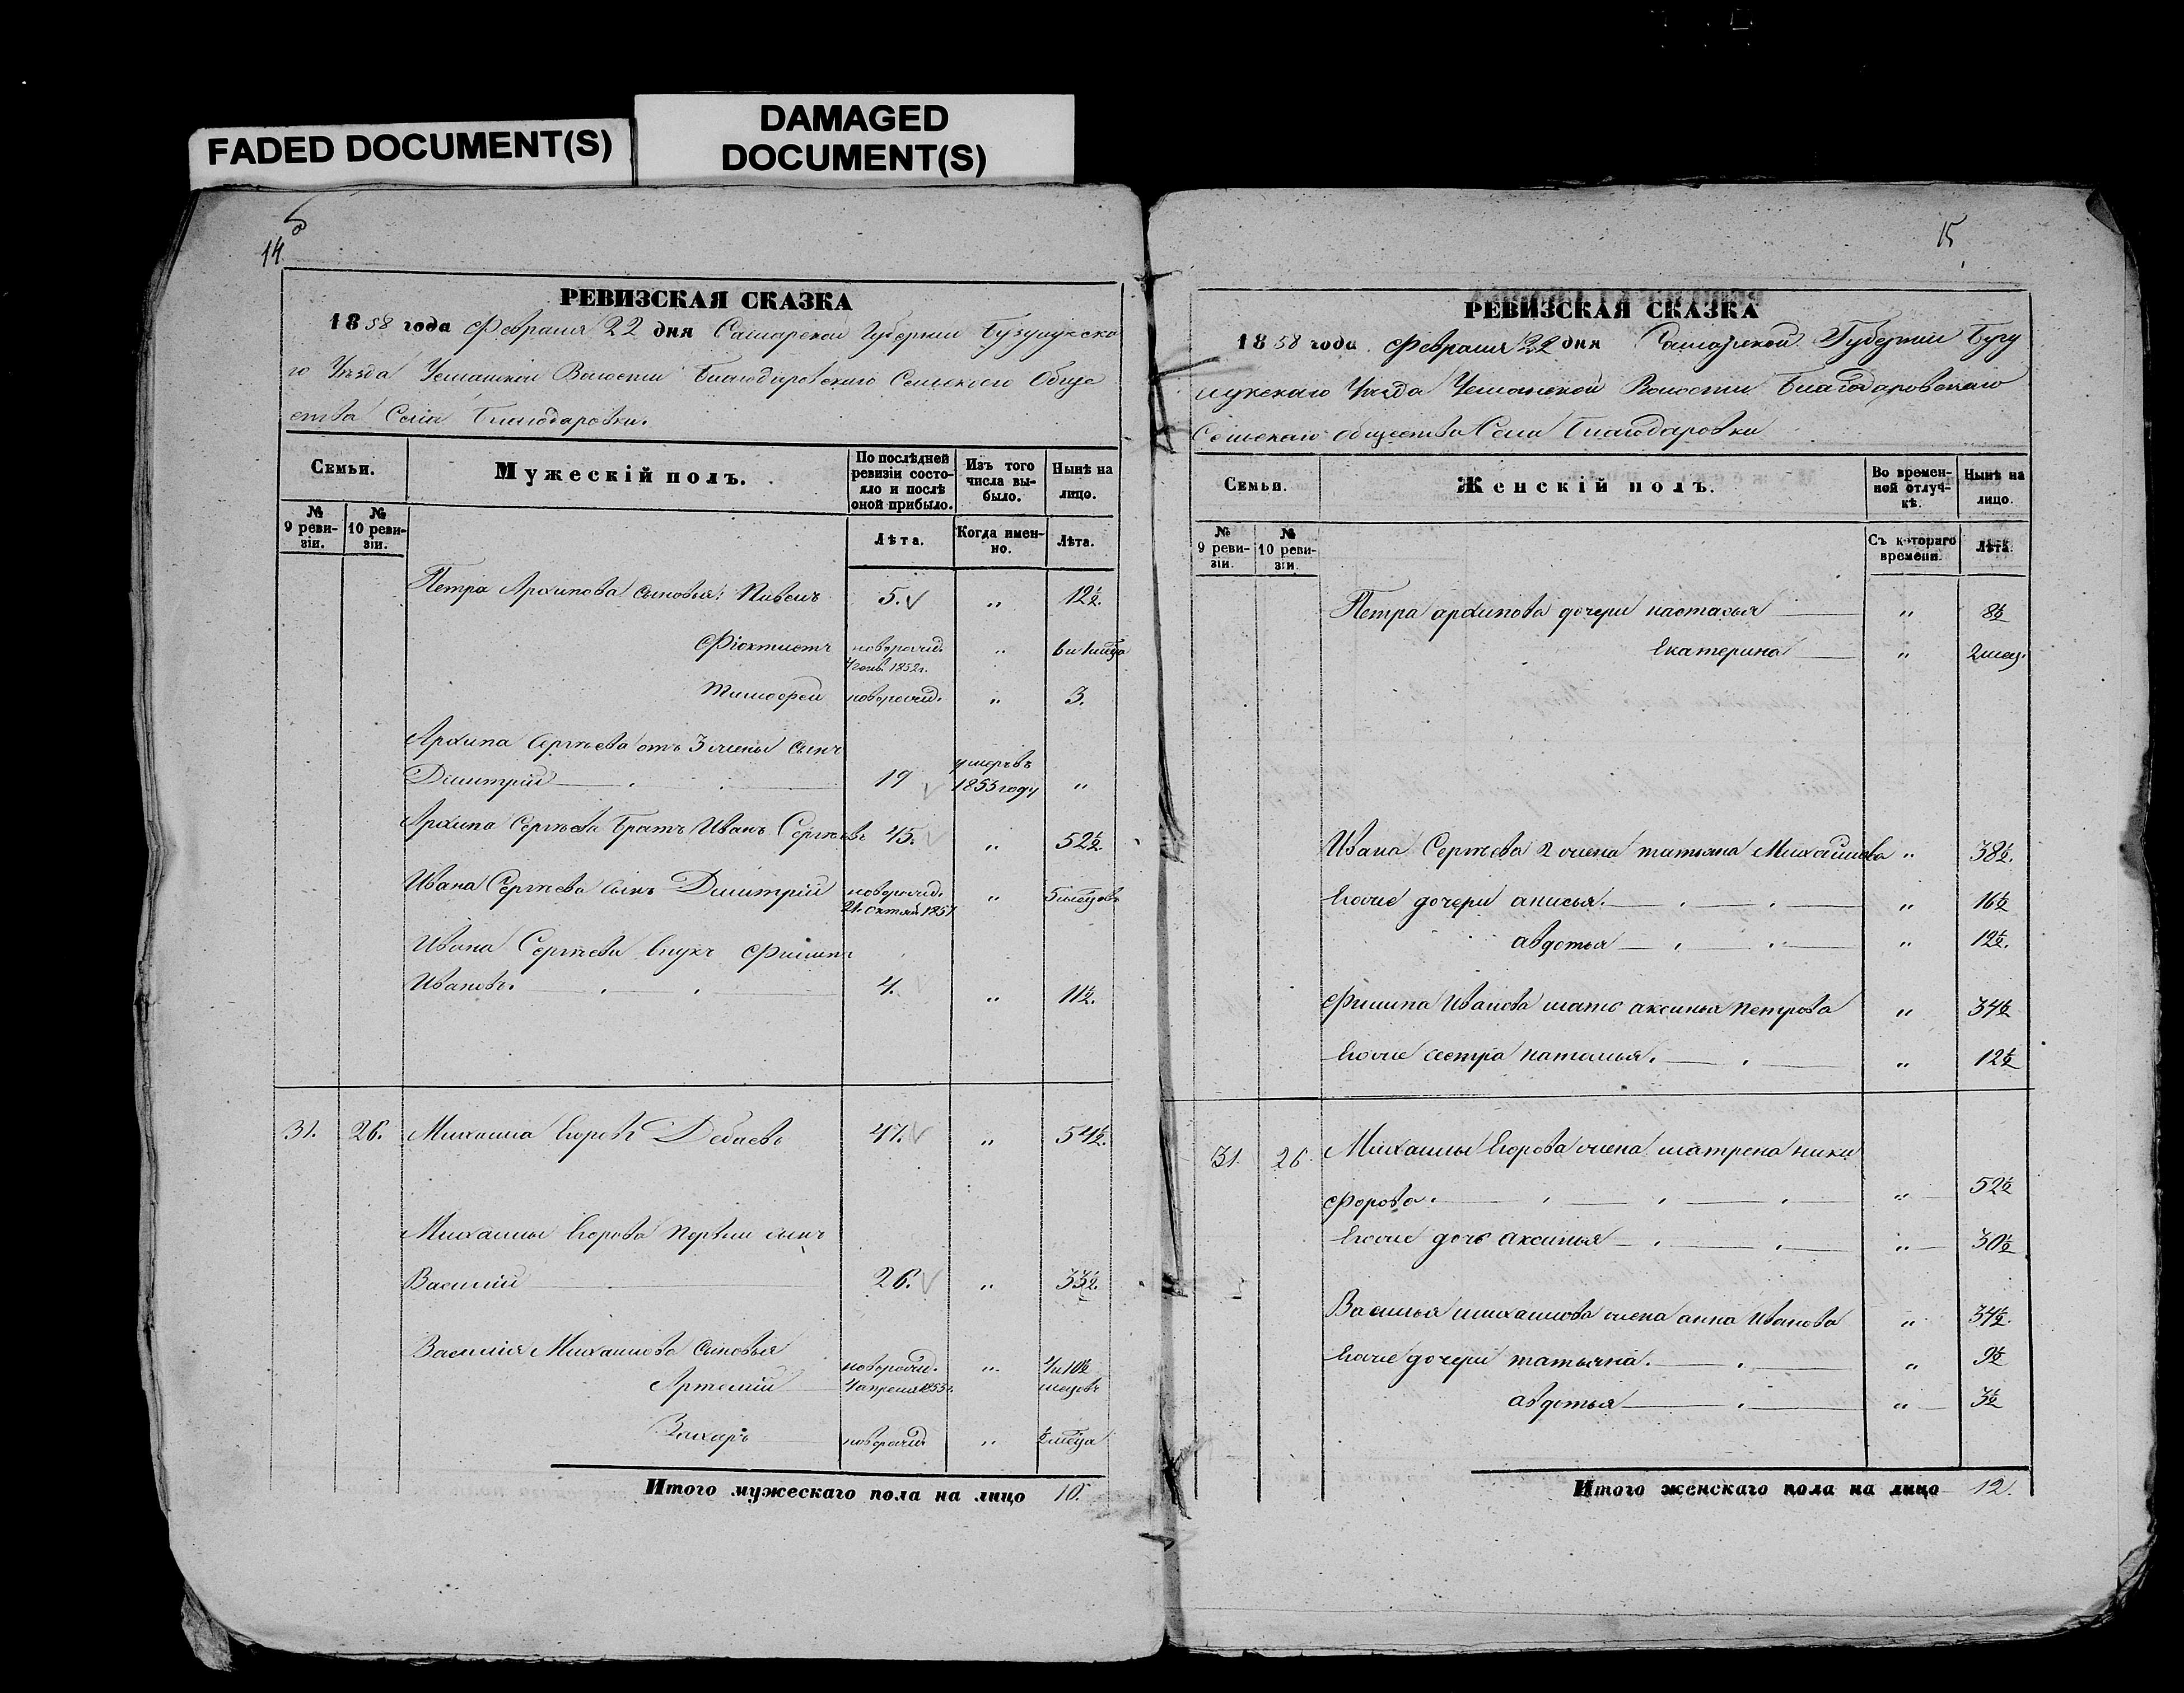 FADED DOCUMENT(S)
DAMAGED
DOCUMENT(S)
14
РЕВИЗСКАЯ СКАЗКА
1858 года Февраля 22 дня Самарской Губернии Бузулукска
го Уѣзда Усманской Волости Благодаровскаго Сельскаго Обще
ства Села Благодаровки.
Семьи.
Мужескій полъ.
По послѣдней ревизіи состояло и послѣ оной прибыло.
Изъ того числа выбыло.
Нынѣ на лицо.
№ 9 ревизіи.
№ 10 ревизіи.
Лѣта.
Когда именно.
Лѣта.
Петра Архипова сыновья: Павелъ 5. " 12½.
Фіоктистъ новорожд. 1852г. "
Тимофей новорожд. " 3.
Архипа Сергѣева отъ 3 жены сынъ
Дмитрій 19 умеръ въ 1855 году "
Архипа Сергѣева Братъ Иванъ Сергѣевъ 45. " 52½.
Ивана Сергѣева сынъ Дмитрій новорожд. 1857 " 5 мѣсцовъ
Ивана Сергѣева внукъ Филипъ
Ивановъ. 4. " 11½.
31. 26. Михаила Егоровъ Дебаевъ 47. " 54½.
Михаилы Егорова первый сынъ
Василій 26. " 33½.
Василія Михаилова сыновья
Артемій новорожд. 4 апреля 1853г. " 4 и 10½ месцовъ
Захаръ новорожд " ½ месца
Итого мужескаго пола на лицо 10.
15
РЕВИЗСКАЯ СКАЗКА
1858 года Февраля 22 дня Самарской Губерніи Бузу
лукскаго Уѣзда Усманской Волости Благодаровскаго
Сельскаго общества Села Благодаровки
Семьи.
Женскій полъ.
Во временной отлучкѣ.
Нынѣ на лицо.
№ 9 ревизіи.
№ 10 ревизіи.
Съ котораго времени.
Лѣта.
Петра архипова дочери настасья " 8½
Екатерина " 2 мец.
Ивана Сергѣева 2 жена татьяна Михайлова " 38½.
Его же дочери анисья. " 16½
авдотья " 12½.
Филипа Иванова мать аксинья Петрова " 34½
Его же сестра наталья. " 12½
31. 26. Михаилы Егорова жена матрена ники
форова. " 52½
Его же дочь аксинья " 30½
Василья михаилова жена анна Иванова " 34½.
Его же дочери татьяна. " 9½
авдотья " 3½
Итого женскаго пола на лицо 12.